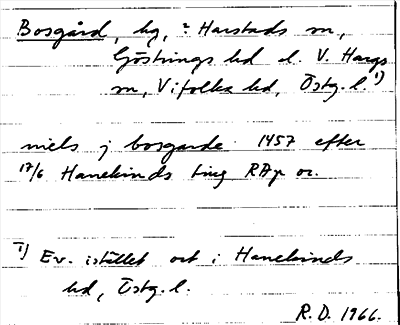 Bosgård, hg, ? Harstads sn,
Göstrings hd el. V. Hargs
sn, Vifolka hd, Östg. l. 1)
niels j bosgarde 1457 efter
17/6 Hanekinds ting RAp or.
1) Ev. istället ort i Hanekinds
hd, Östg. l.
R.D. 1966.